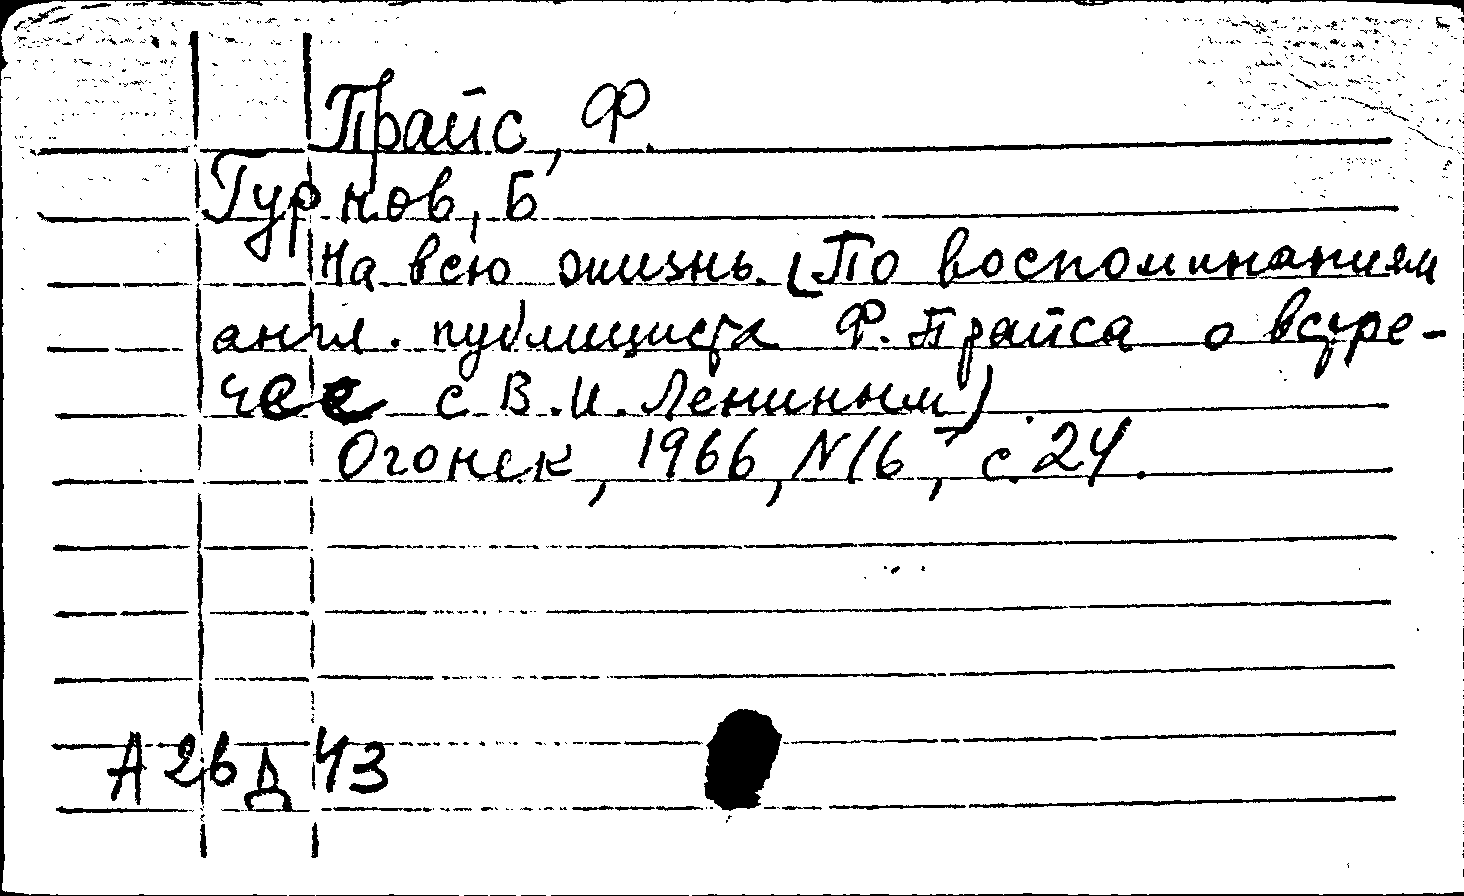 Прайс, Ф.
Гурнов, Б
На всю жизнь. (По воспоминаниям
англ. публициста Ф. Прайса о встре-
че с В.И. Лениным).
Огонек, 1966, N16, с. 24.
А 2в Д 43